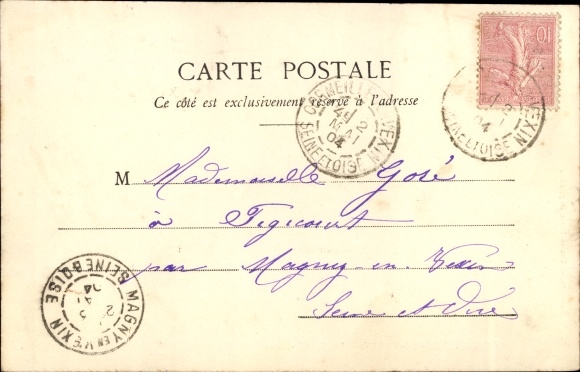 CARTE POSTALE
Ce côté est exclusivement réservé à l'adresse
10
CORMEILLES VEXIN
MAI
04
SEINE ET OISE
VEXIN
04
SEINE ET OISE
M Mademoiselle Goré
à
par Magny-en-Vexin
Seine et Oise
MAGNY EN VEXIN
2
04
SEINE & OISE